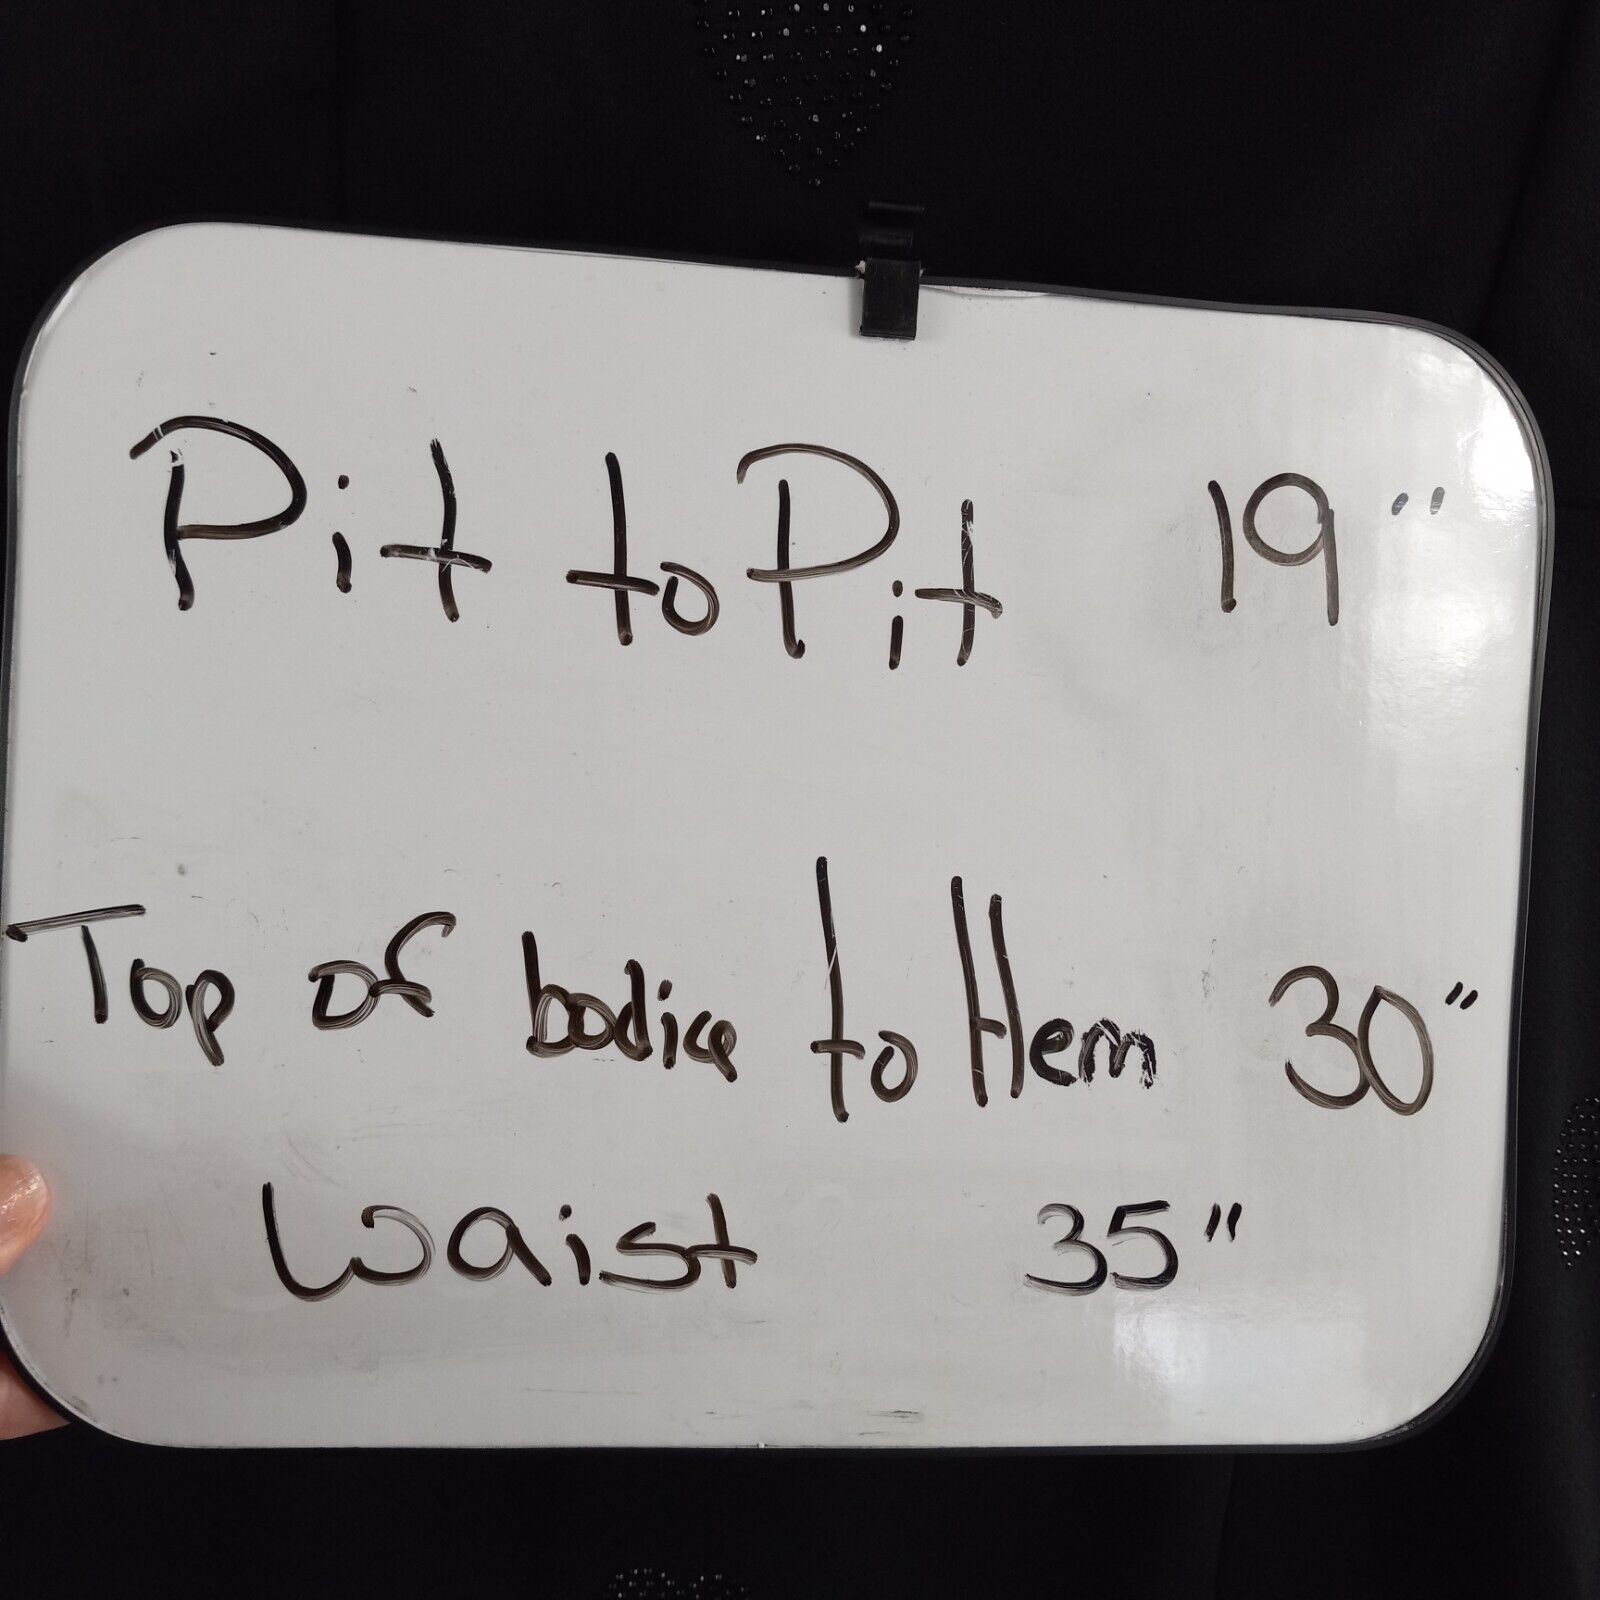 Pit to Pit 19"
Top of bodice to Hem 30"
Waist 35"